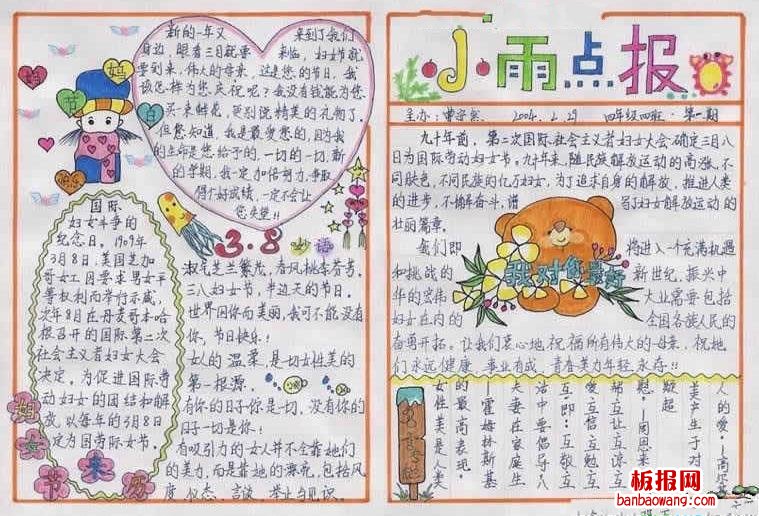 新的一年又 来到了我们
身边，眼看三月就要 来临，妇女节就
要到来，伟大的母亲，这是您的节日，我
该怎样为您庆祝呢？我没有钱能为您
买一束鲜花，更别说精美的礼物了。
但您知道，我是最爱您的，因为我
的生命是您给予的，一切的一切，新
的学期，我一定加倍努力，争取
得个好成绩，一定不会让
您失望！！
国际
妇女斗争的
纪念日，1909年
3月8日，美国芝加
哥女工因要求男女平
等权利而举行示威，
次年8月在丹麦哥本哈
根召开的国际第二次
社会主义者妇女大会
决定，为促进国际劳
动妇女的团结和解
放，以每年的3月8日
定为国劳际女节。
妇女节来历
3·8妙语
淑气芝兰繁茂，春风桃李芳香。
三八妇女节，半边天的节日。
世界因你而美丽，我可不能没有
你，节日快乐！
女人的温柔，是一切女性美的
第一根源。
有你的日子你是一切，没有你的
日子一切是你！
有吸引力的女人并不全靠她们
的美力，而是靠她的漂亮，包括风
度、仪态、言谈、举止与见识。
小雨点报
主办：曹 2004.2.29 四年级四班 第一期
九十年前，第二次国际社会主义者妇女大会确定三月八
日为国际劳动妇女节，九十年来，随民族解放运动的高涨，不
同肤色，不同民族的亿万妇女，为了追求自身的解放，推进人类
的进步，不懈奋斗，谱 写妇女解放运动的
壮丽篇章。
我们即 将进入一个充满机遇
和挑战的 新世纪，振兴中
华的宏伟 大业需要包括
妇女在内的 全国各族人民的
奋勇开拓。让我们衷心地，祝福所有伟大的母亲，祝她
们永远健康，事业有成，青春美力年轻永存！！
我对你最好
人的爱。—高尔基
美产生于对
疑超
慰。—周恩来
帮互让互谅互
爱互信互勉互
互”即：互敬互
活中要倡导八
夫妻在家庭生
—霍姆林斯基
的最高表现。
女性美是人类
名言
板报网
banbaowang.com